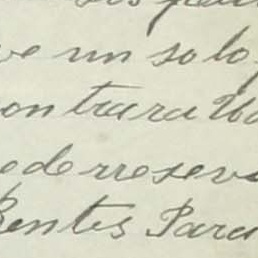 ve un solo
ontrara Ud
ederreserv
Bentes Para